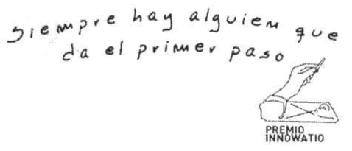 siempre hay alguien que
da el primer paso
PREMIO
INNOWATIO